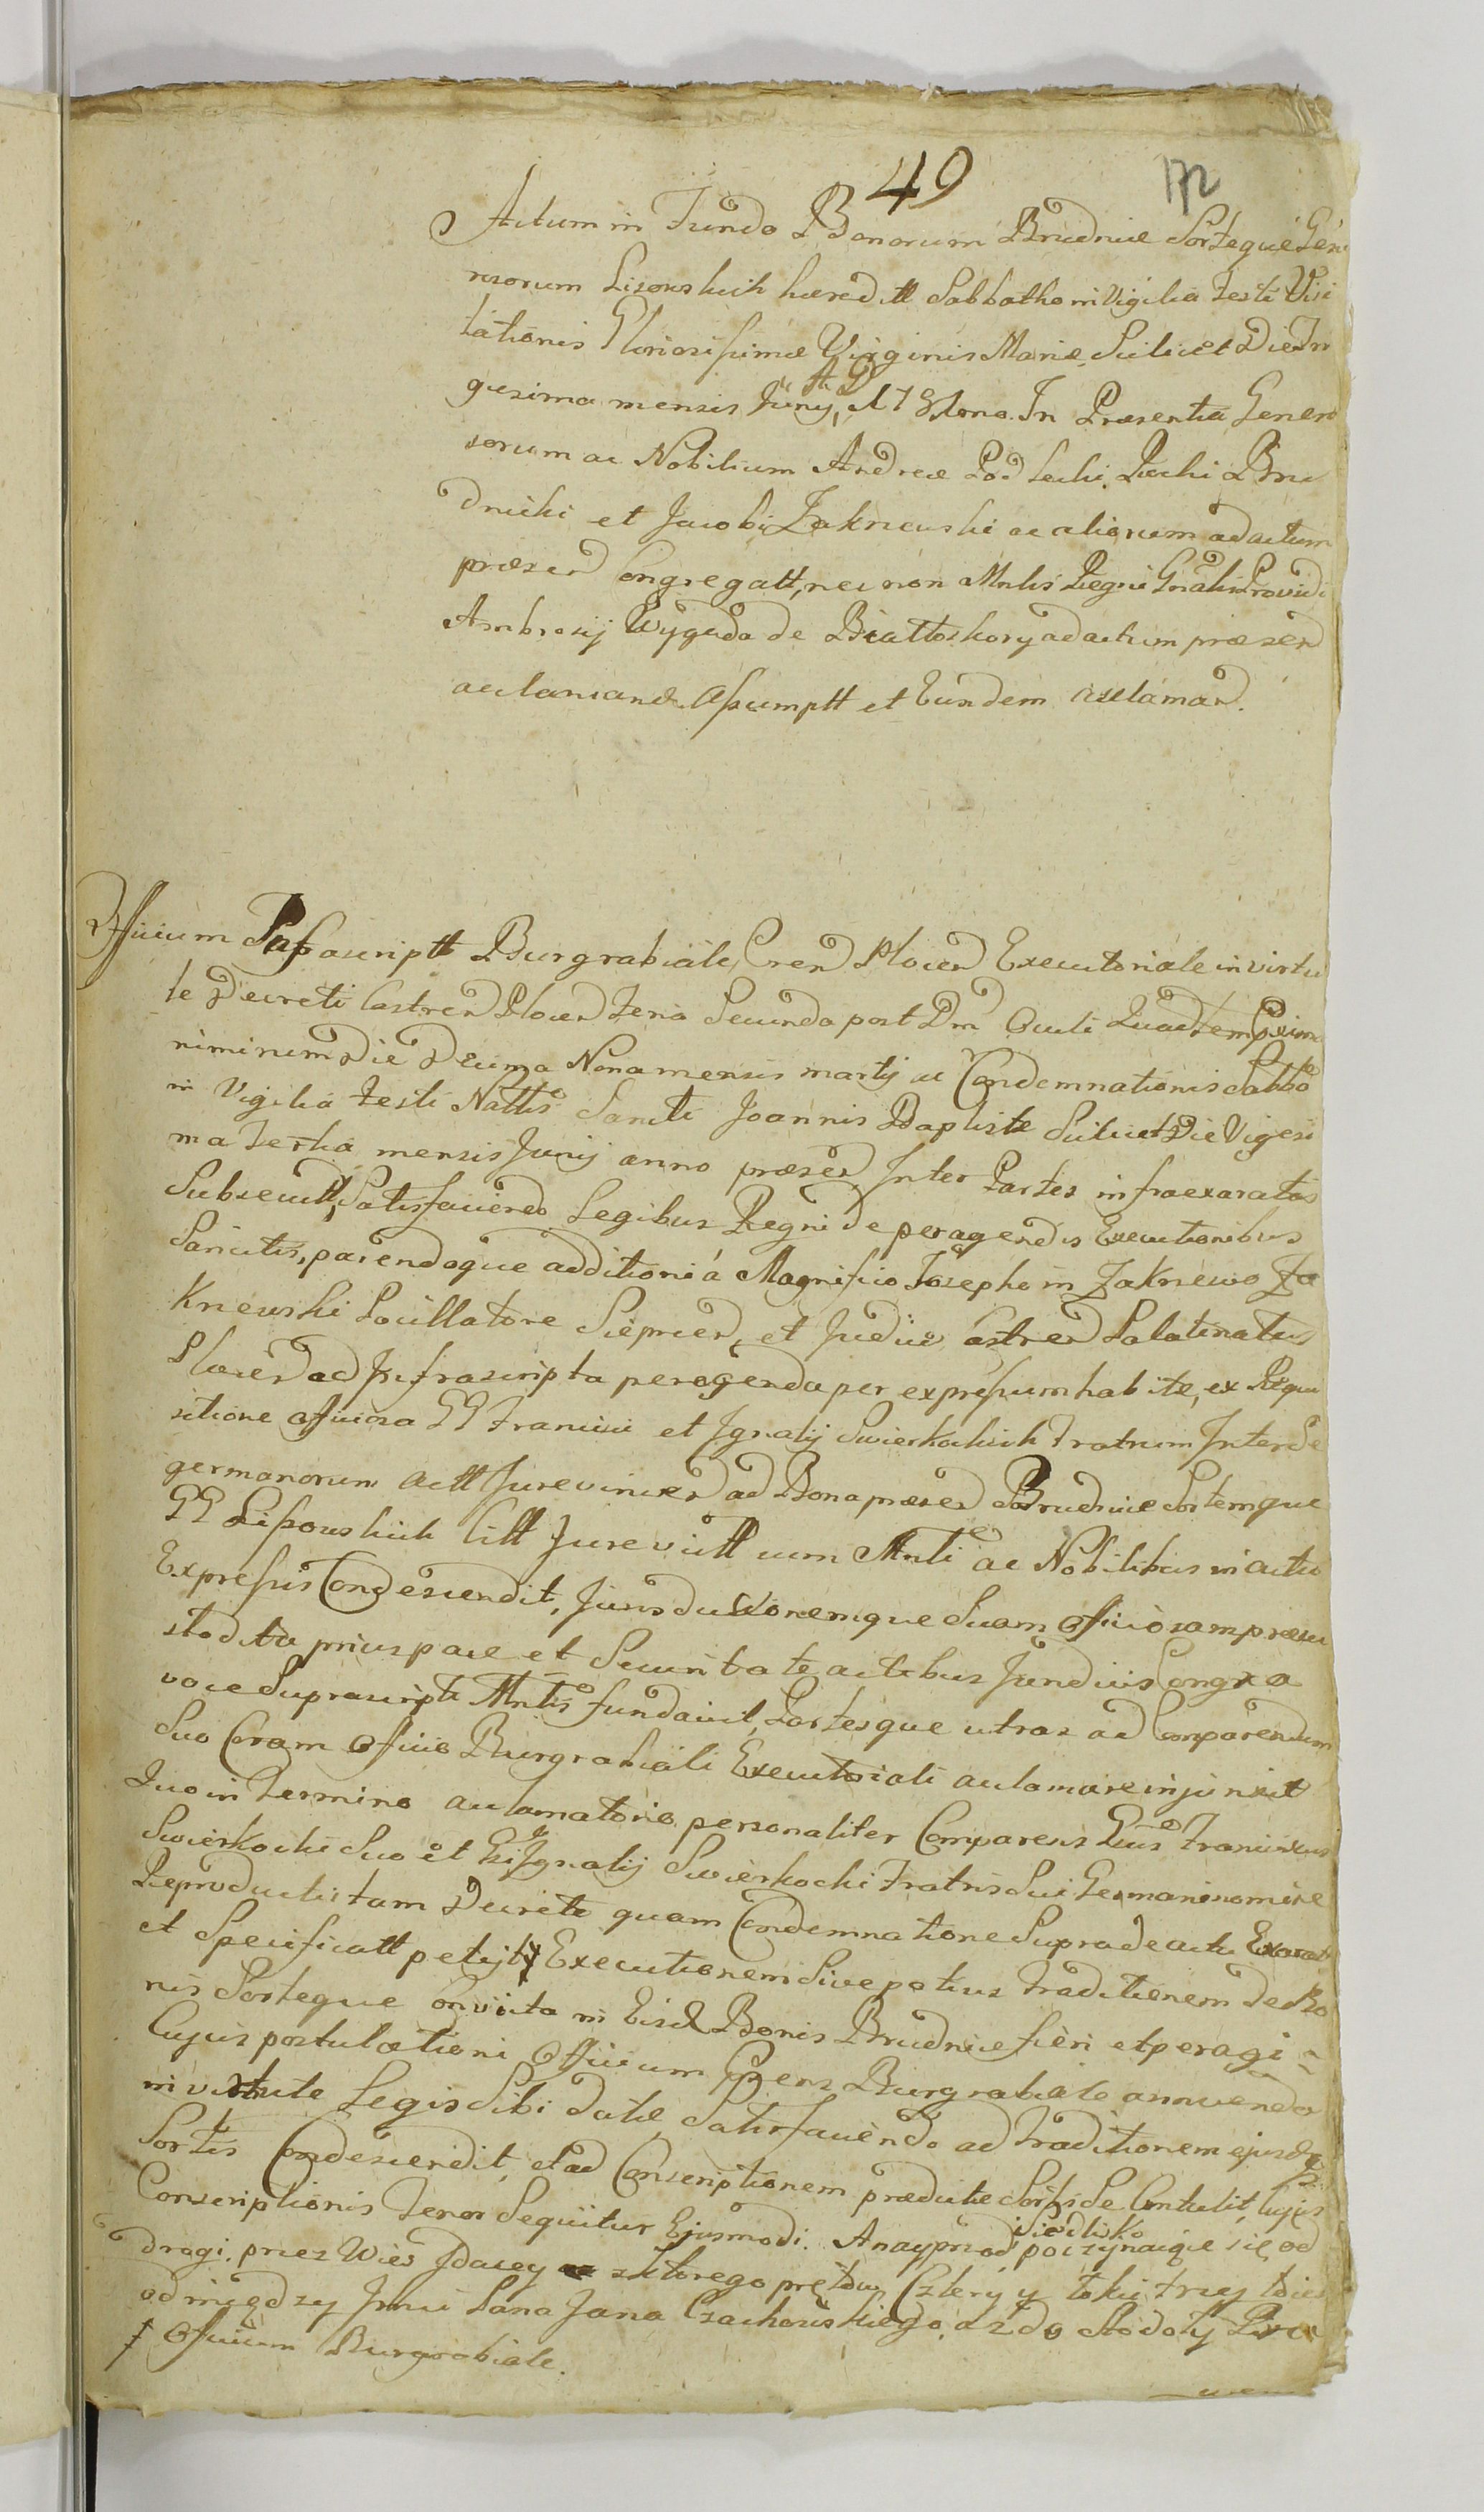 49
172
Actum in Fundo Bonorum Brudnice Sorteque Gene
rosorum Lisowskich hæredtt Sabbatho in Vigilia Festi Visi
tationis Gloriosissimæ Virginis Mariæ Scilicet Die Tri
gesima mensis Junij, A. D.
In Præsentia Genero
sorum ac Nobilium Andreæ et
Brudnicki et Jacobi Zakrzewski ac aliorum ad actum
præsen Congregatt, nec non Mnlis Regni Gnalis Providi
Ambrosij Wygoda de Białłoskory ad actum præsen
acclamand. Assumptt et Eundem acclamand.
Officium Infrascriptt Burgrabiale Cren Plocen Executoriale in virtu
te Decreti Castren Plocen Feria Secunda post Dm Oculi
niminum Die Decima Nona mensis martij ac Condemnationis Sabbo
in Vigilia Festi Nattis Sancti Joannis Baptistæ Scilicet Die Vigesi
ma Tertia mensis Junij anno præsen Inter Partes infraexaratas
Subsecutt, Satisfaciendo Legibus Regni de peragendis Executionibus
Sancitis, parendoque additioni á Magnifico Josepho in Zakrzewo Za
krzewski Pocillatore Sieprcen, et Judice Castren Palatinatus
Plocen ad Infrascripta peragenda per expressum habitæ, ex Requi
sitione officiosa GG Francisci et Ignatij Swierkockich Fratrum Inter Se
germanorum Actt Jurevincen ad Bona præsen Brudnice Sortemque
GG Lissowskich Citt Jurevictt cum Mnli ac Nobilibus in actu
Expressis Condescendit, Jurisdictionemque Suam officiosam præcu
stodita prius pace et Securitate actibus Juridicis Congrua
voce Suprascripti Mnlis fundavit, Partesque utras ad Comparendum
Suo Coram Officio Burgrabiali Executoriali acclamare injunxit
Quo in Termino acclamatorio personaliter Comparens Gnus Franciscus
Swierkocki Suo et Gsi Ignatij Swierkocki Fratris Sui Germani nomine
Reproductis tam Decreto quam Condemnatione Supra de actu Exarat
et Specificatt petijt Executionem Sive potius Traditionem de Bo
nis Sorteque Convicta in Eisd Bonis Brudnice fieri et peragi
Cujus postulationi Officium Præns Burgrabiale annuendo
in virtute Legis Sibi datæ Satisfaciendo ad Traditionem ejusdem
Sortis Condescendit, et ad Conscriptionem prædictæ Sortis Se Contulit, Cujus
Conscriptionis Tenor Sequitur Ejusmodi. Anayprzod Siedlisko poczynaiące się od
drogi przez Wies Jdącey z ktorego prętow Cztery y łokci trzy to iest
od miedzy Jmci Pana Jana Czachowskiego, aż do Stodoły
ɟ Officium Burgrabiale.